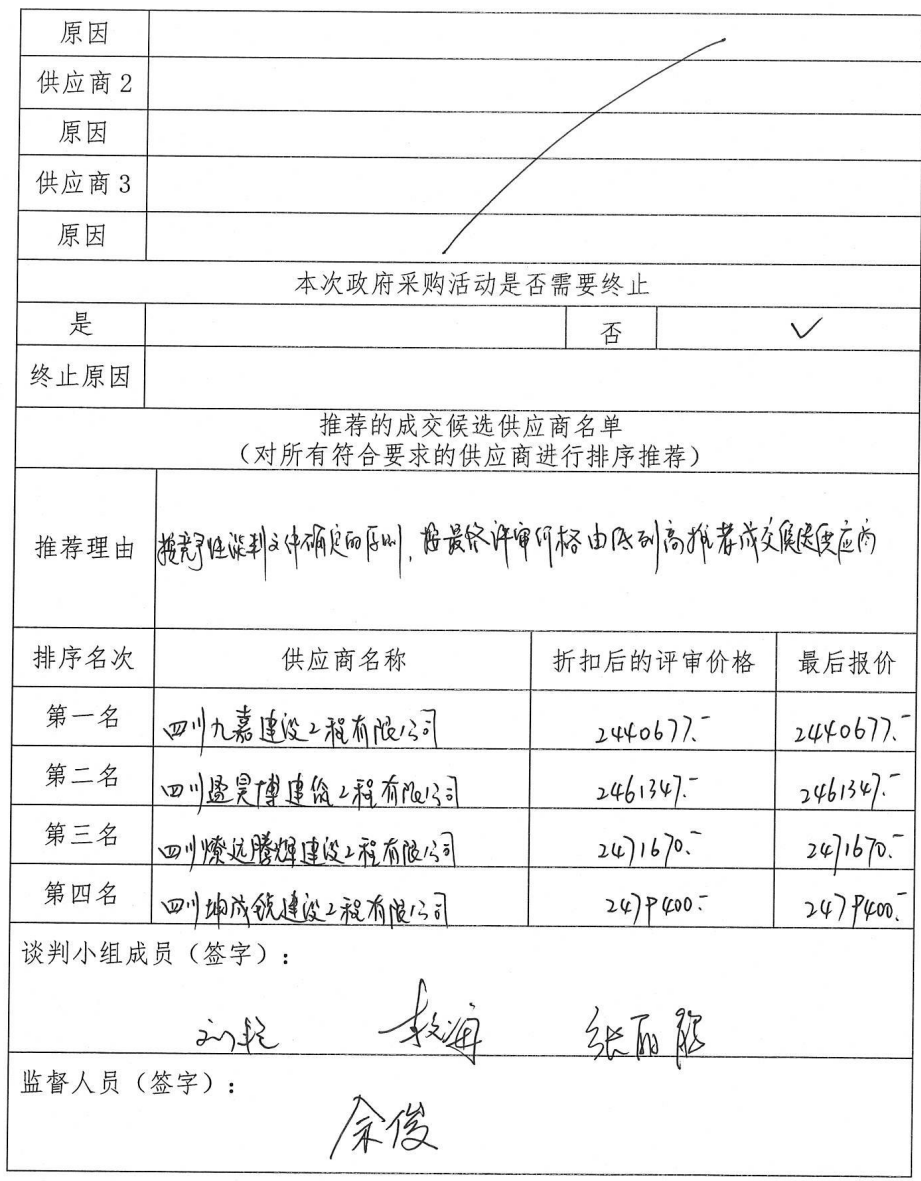 原因
供应商2
原因
供应商3
原因
本次政府采购活动是否需要终止
是 否 ✓
终止原因
推荐的成交候选供应商名单
（对所有符合要求的供应商进行排序推荐）
推荐理由 按竞争性谈判文件确定的原则，按最终评审价格由低到高推荐成交候选供应商
排序名次 供应商名称 折扣后的评审价格 最后报价
第一名 四川九嘉建设工程有限公司 2440677.- 2440677.-
第二名 四川 昊博建筑工程有限公司 2461347.- 2461347.-
第三名 四川燎远腾辉建设工程有限公司 2471670.- 2471670.-
第四名 四川坤成 建设工程有限公司 2479400.- 2479400.-
谈判小组成员（签字）：
张丽
监督人员（签字）：
余俊